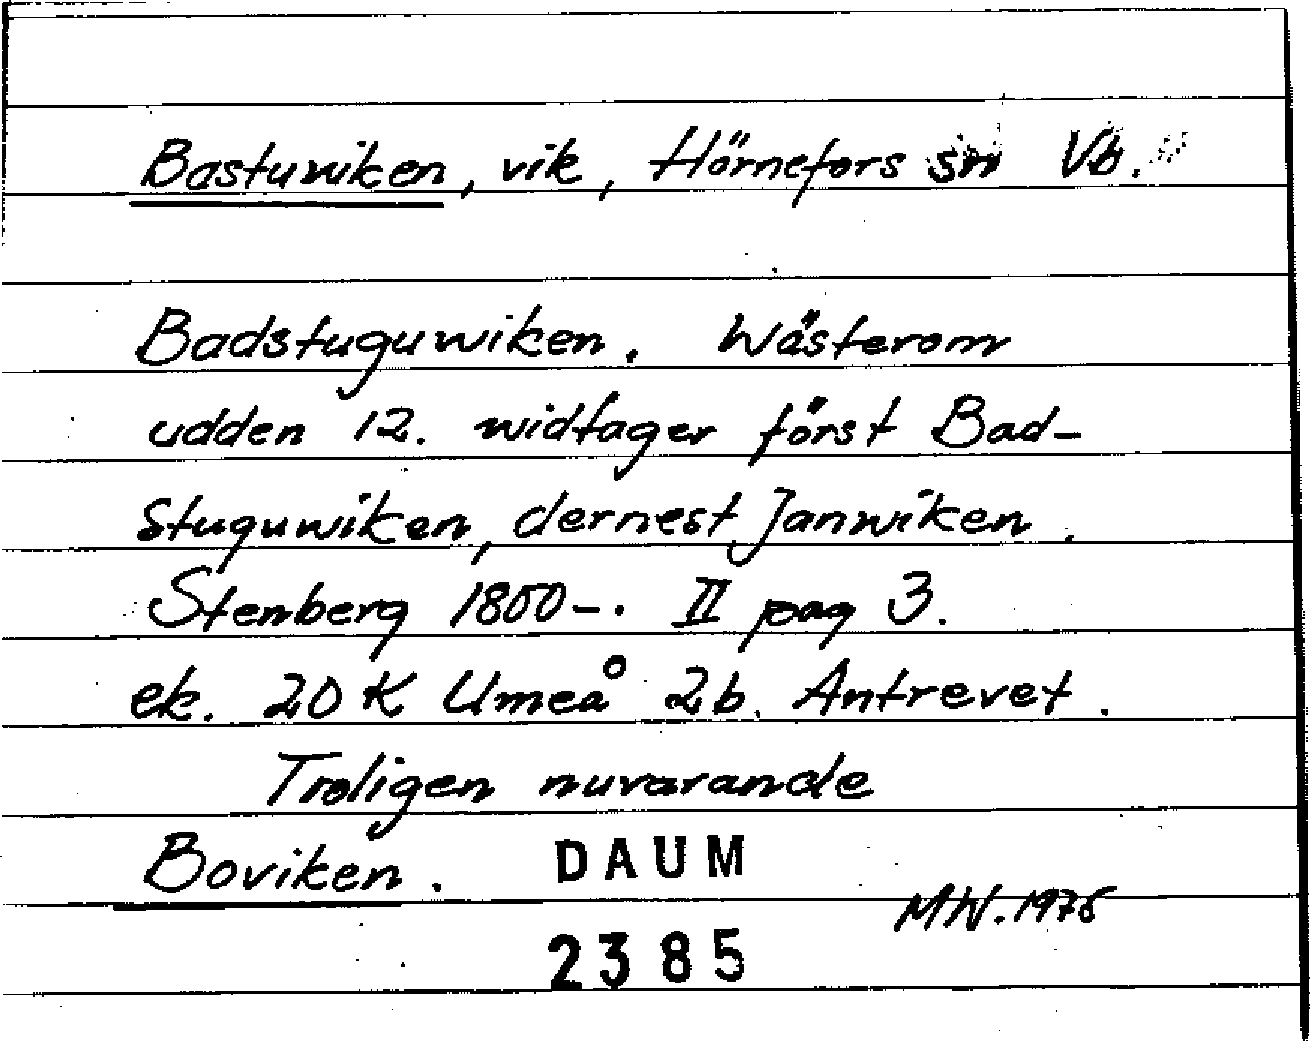 Bastuwiken, vik, Hörnefors sn Vb.
Badstuguwiken. Wästerom
udden 12. widtager först Bad-
stuguwiken, dernest Janwiken.
Stenberg 1800-. II pag 3.
ek. 20 K Umeå 2b. Antrevet.
Troligen nuvarande
Boviken.
DAUM
MW. 1976
2385